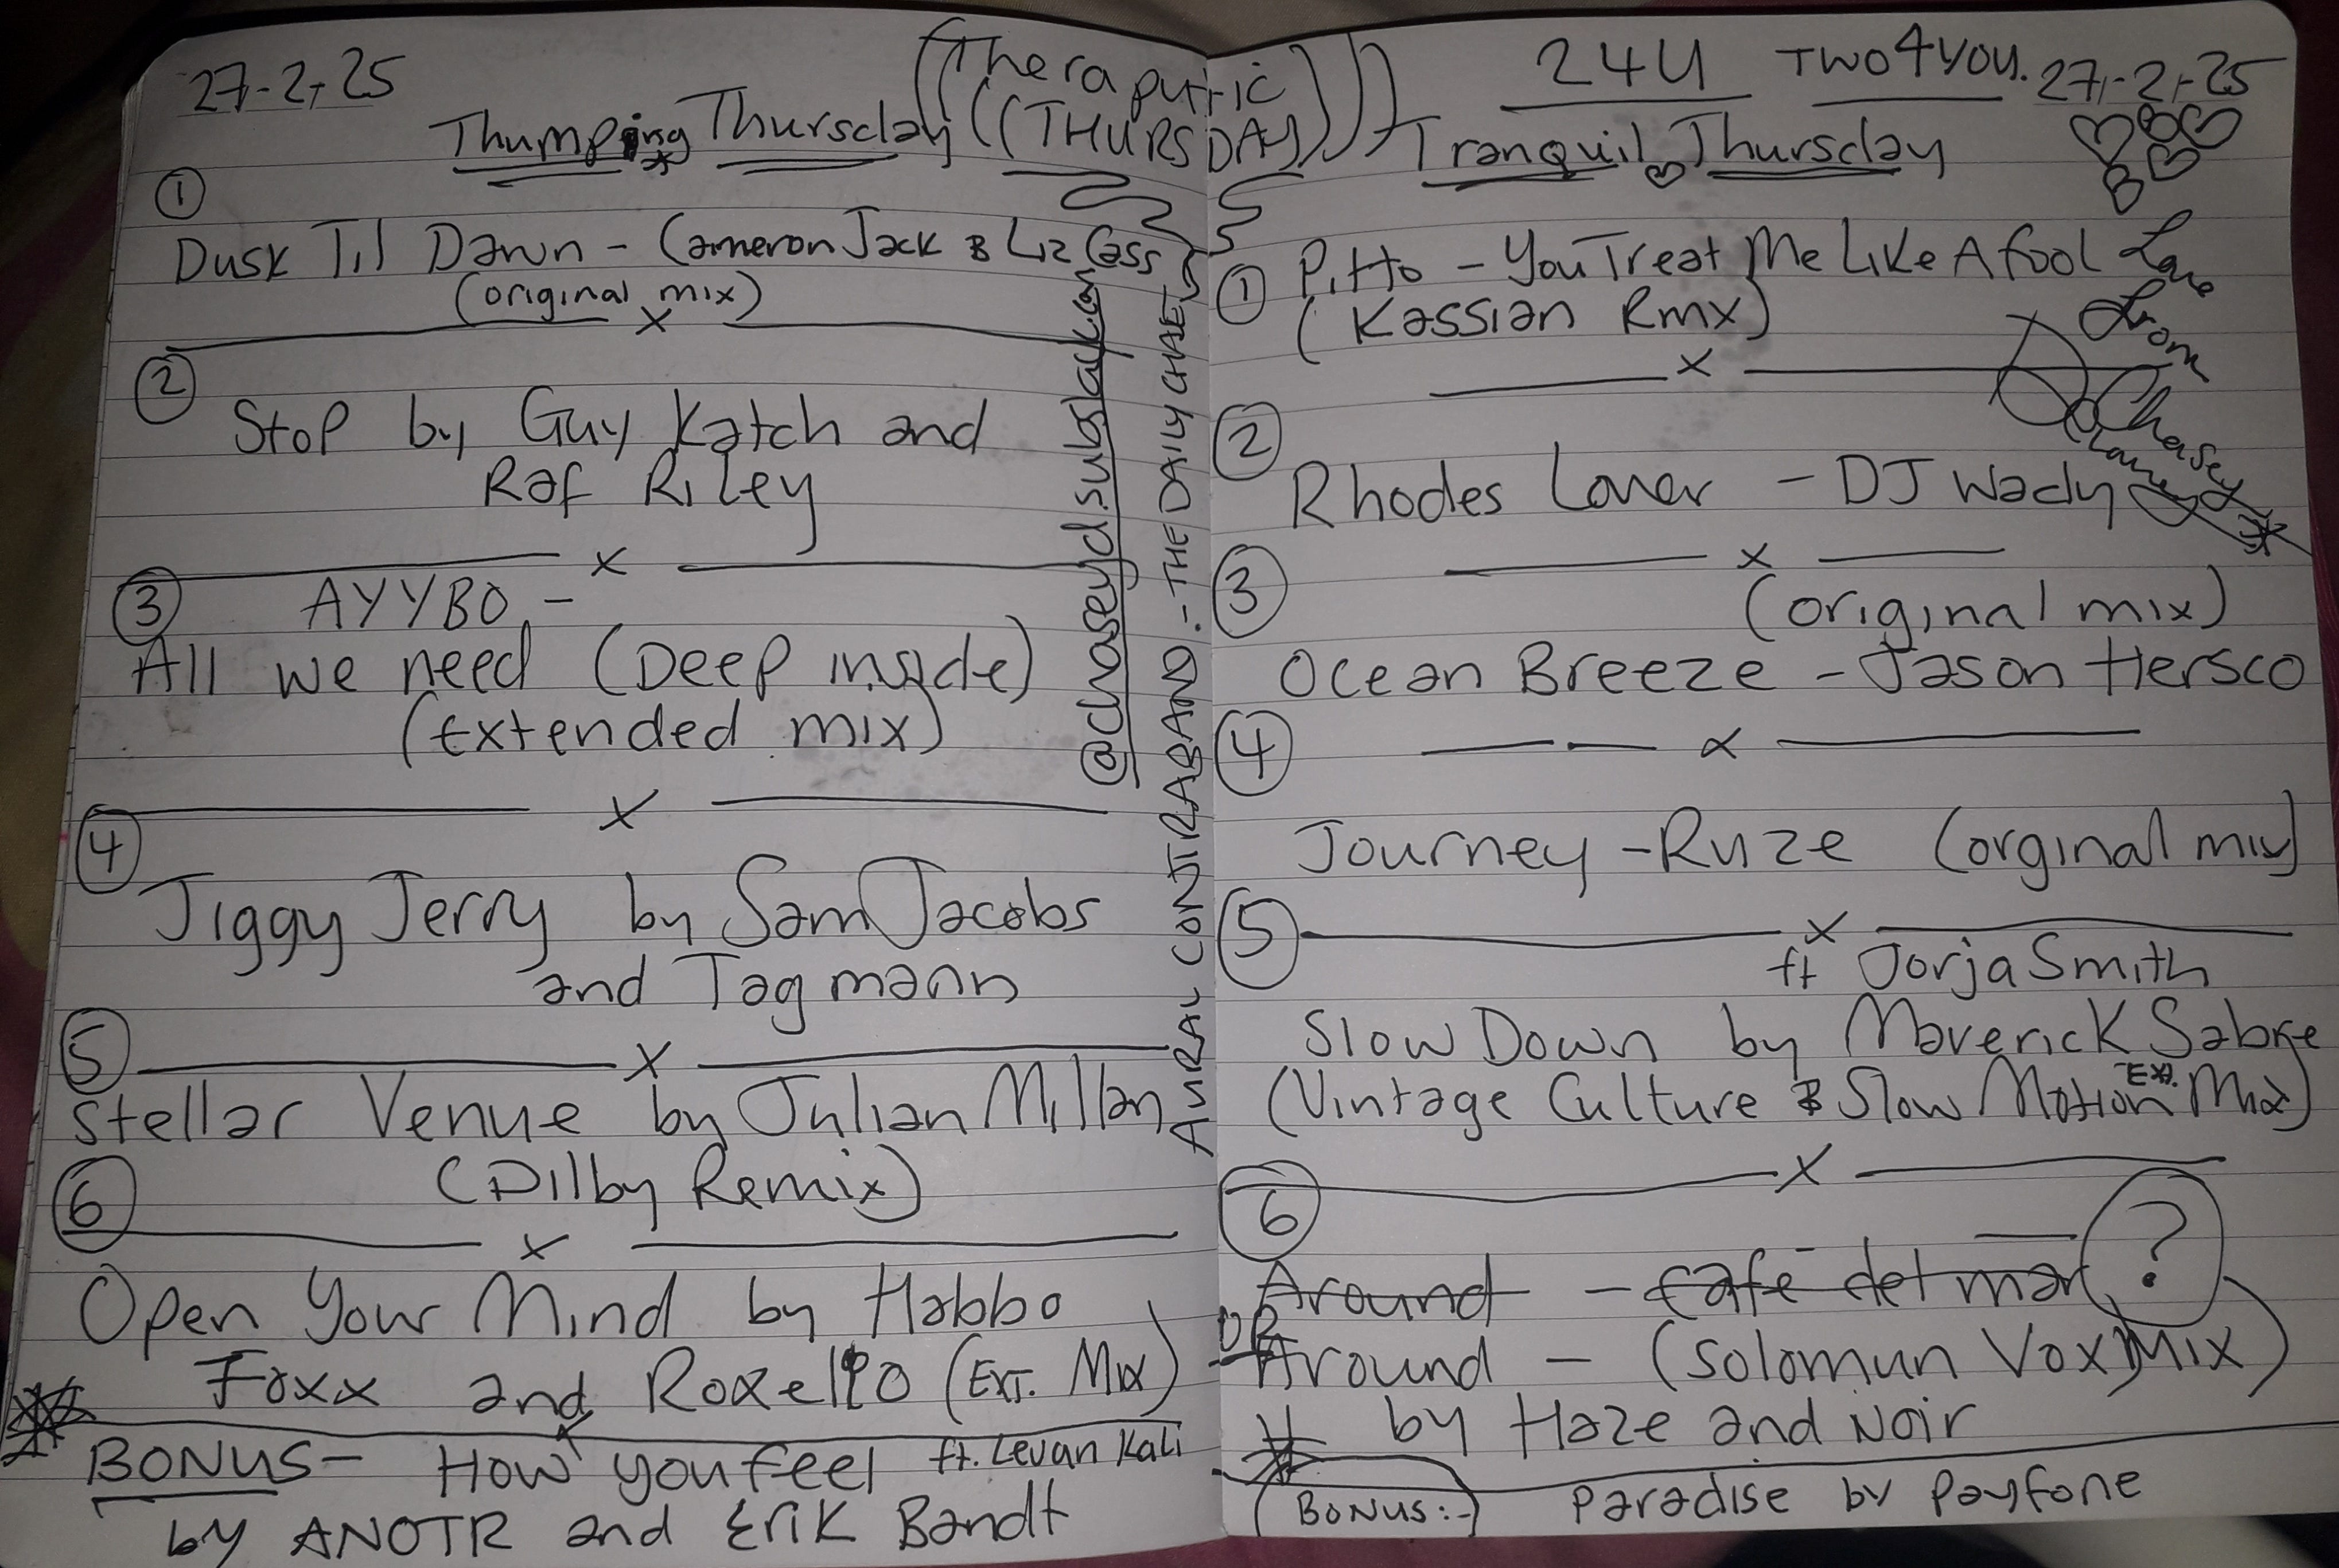 27-2-25
Thumping Thursday
((Theraputic
((THURSDAY)))
①
Dusk Til Dawn - Cameron Jack & Liz Cass
(original mix)
x
②
Stop by Guy Katch and
Raf Riley
x
③ AYYBO -
All we need (Deep inside)
(Extended mix)
x
④
Jiggy Jerry by Sam Jacobs
and Tagmann
⑤ x
Stellar Venue by Julian Millan
(Dilby Remix)
⑥ x
Open Your Mind by Habbo
Foxx and Roxello (Ext. Mix)
BONUS- How you feel ft. Levan Kali
by ANOTR and Erik Bandt
@chaseyd.substack.com
AURAL CONTRABAND - THE DAILY CHASE
24U TWO4YOU. 27-2-25
Tranquil Thursday
① Pitto - You Treat Me Like A fool
(Kassian Rmx)
Love
From
Chasey
x
②
Rhodes Lover - DJ Wady
x
③ (original mix)
Ocean Breeze - Jason Hersco
④ x
Journey - Ruze (orginal mix)
⑤ x
ft Jorja Smith
Slow Down by Maverick Sabre
(Vintage Culture & Slow Motion Ext. Mix)
x
⑥
Around - cafe del mar ?
OR
Around - (Solomun Vox Mix)
by Haze and Noir
(BONUS:-) Paradise by Payfone